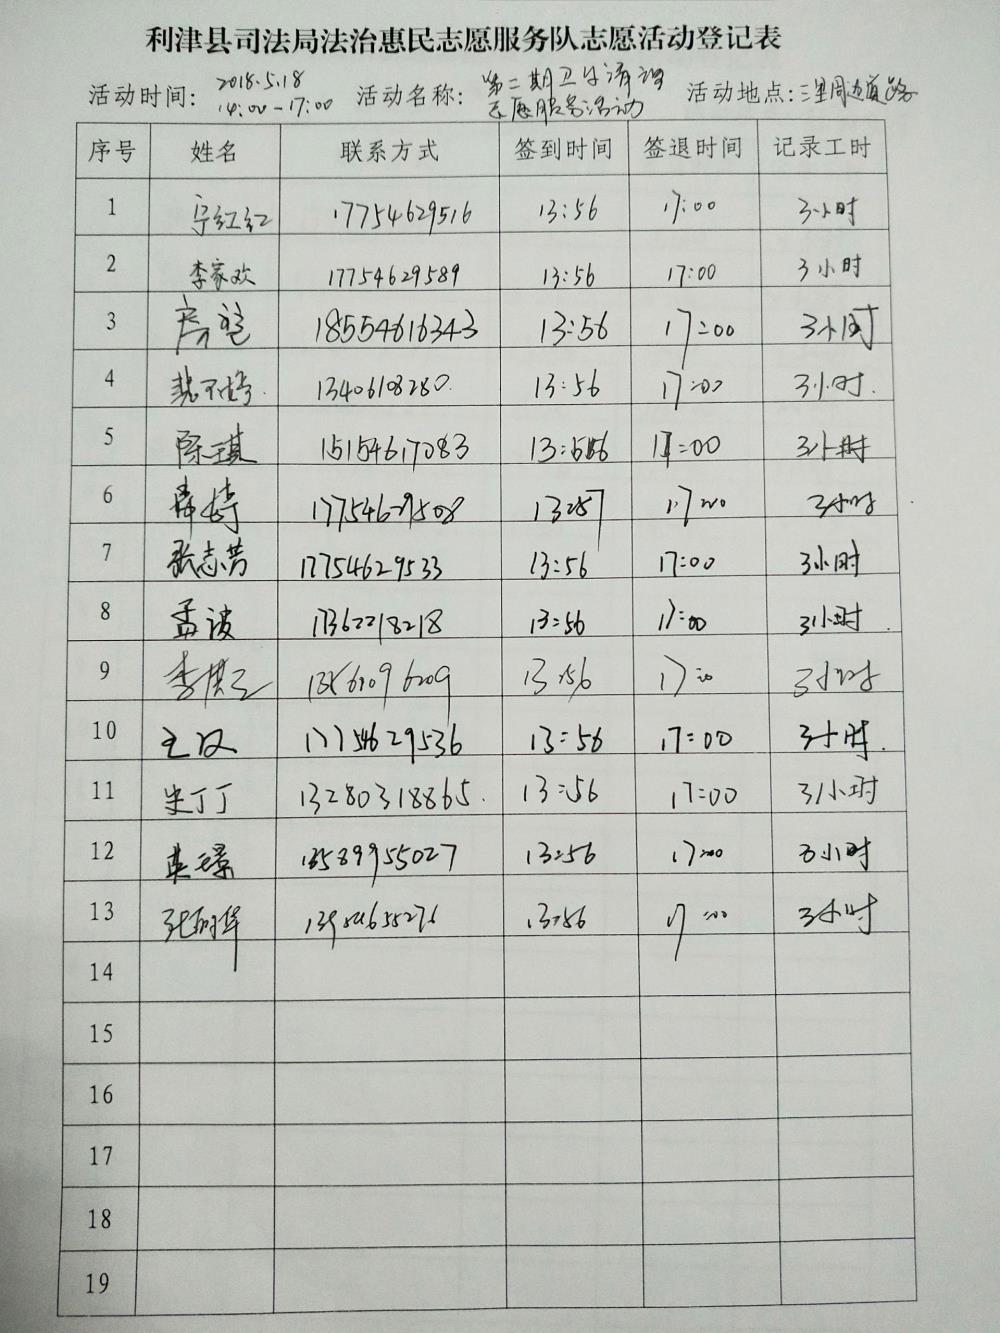 利津县司法局法治惠民志愿服务队志愿活动登记表
活动时间: 2018.5.18 14:00-17:00 活动名称: 第二期卫生清理志愿服务活动 活动地点: 三里周边道路
序号 姓名 联系方式 签到时间 签退时间 记录工时
1 宁红红 17754629516 13:56 17:00 3小时
2 李家欢 17754629589 13:56 17:00 3小时
3 18554616343 13:56 17:00 3小时
4 1340618280. 13:56 17:00 3小时.
5 陈琪 15154617083 13:56 17:00 3小时
6 17754629508 13:57 17:00 3小时
7 张志芳 17754629533 13:56 17:00 3小时
8 孟波 17362218218 13:56 17:00 3小时.
9 13:56 17:00 3小时
10 王汉 17754629536 13:56 17:00 3小时.
11 史丁丁 13280318865. 13:56 17:00 3小时
12 13589955027 13:56 17:00 3小时
13 13:56 17:00 3小时
14
15
16
17
18
19